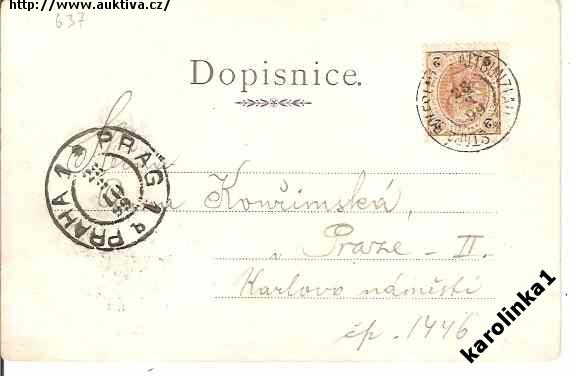 http://www.auktiva.cz/
637
Dopisnice.
PRAG 1 PRAHA 1
Kouřimská,
Praze - II.
Karlovo náměstí
čp. 1446
karolinka1